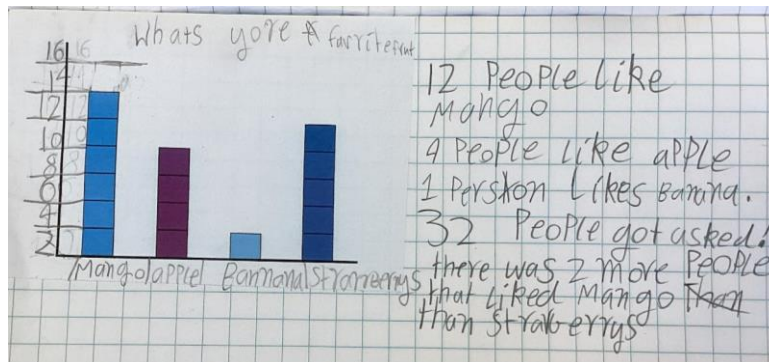 Whats yore favritefrut
16
14
12
10
8
6
4
2
Mango apple Bannana Strawberrys
12 People like
Mango
9 People like apple
1 Perskon Likes Banana.
32 People got asked!
there was 2 more People
that Liked Mango Than
than Strawberrys